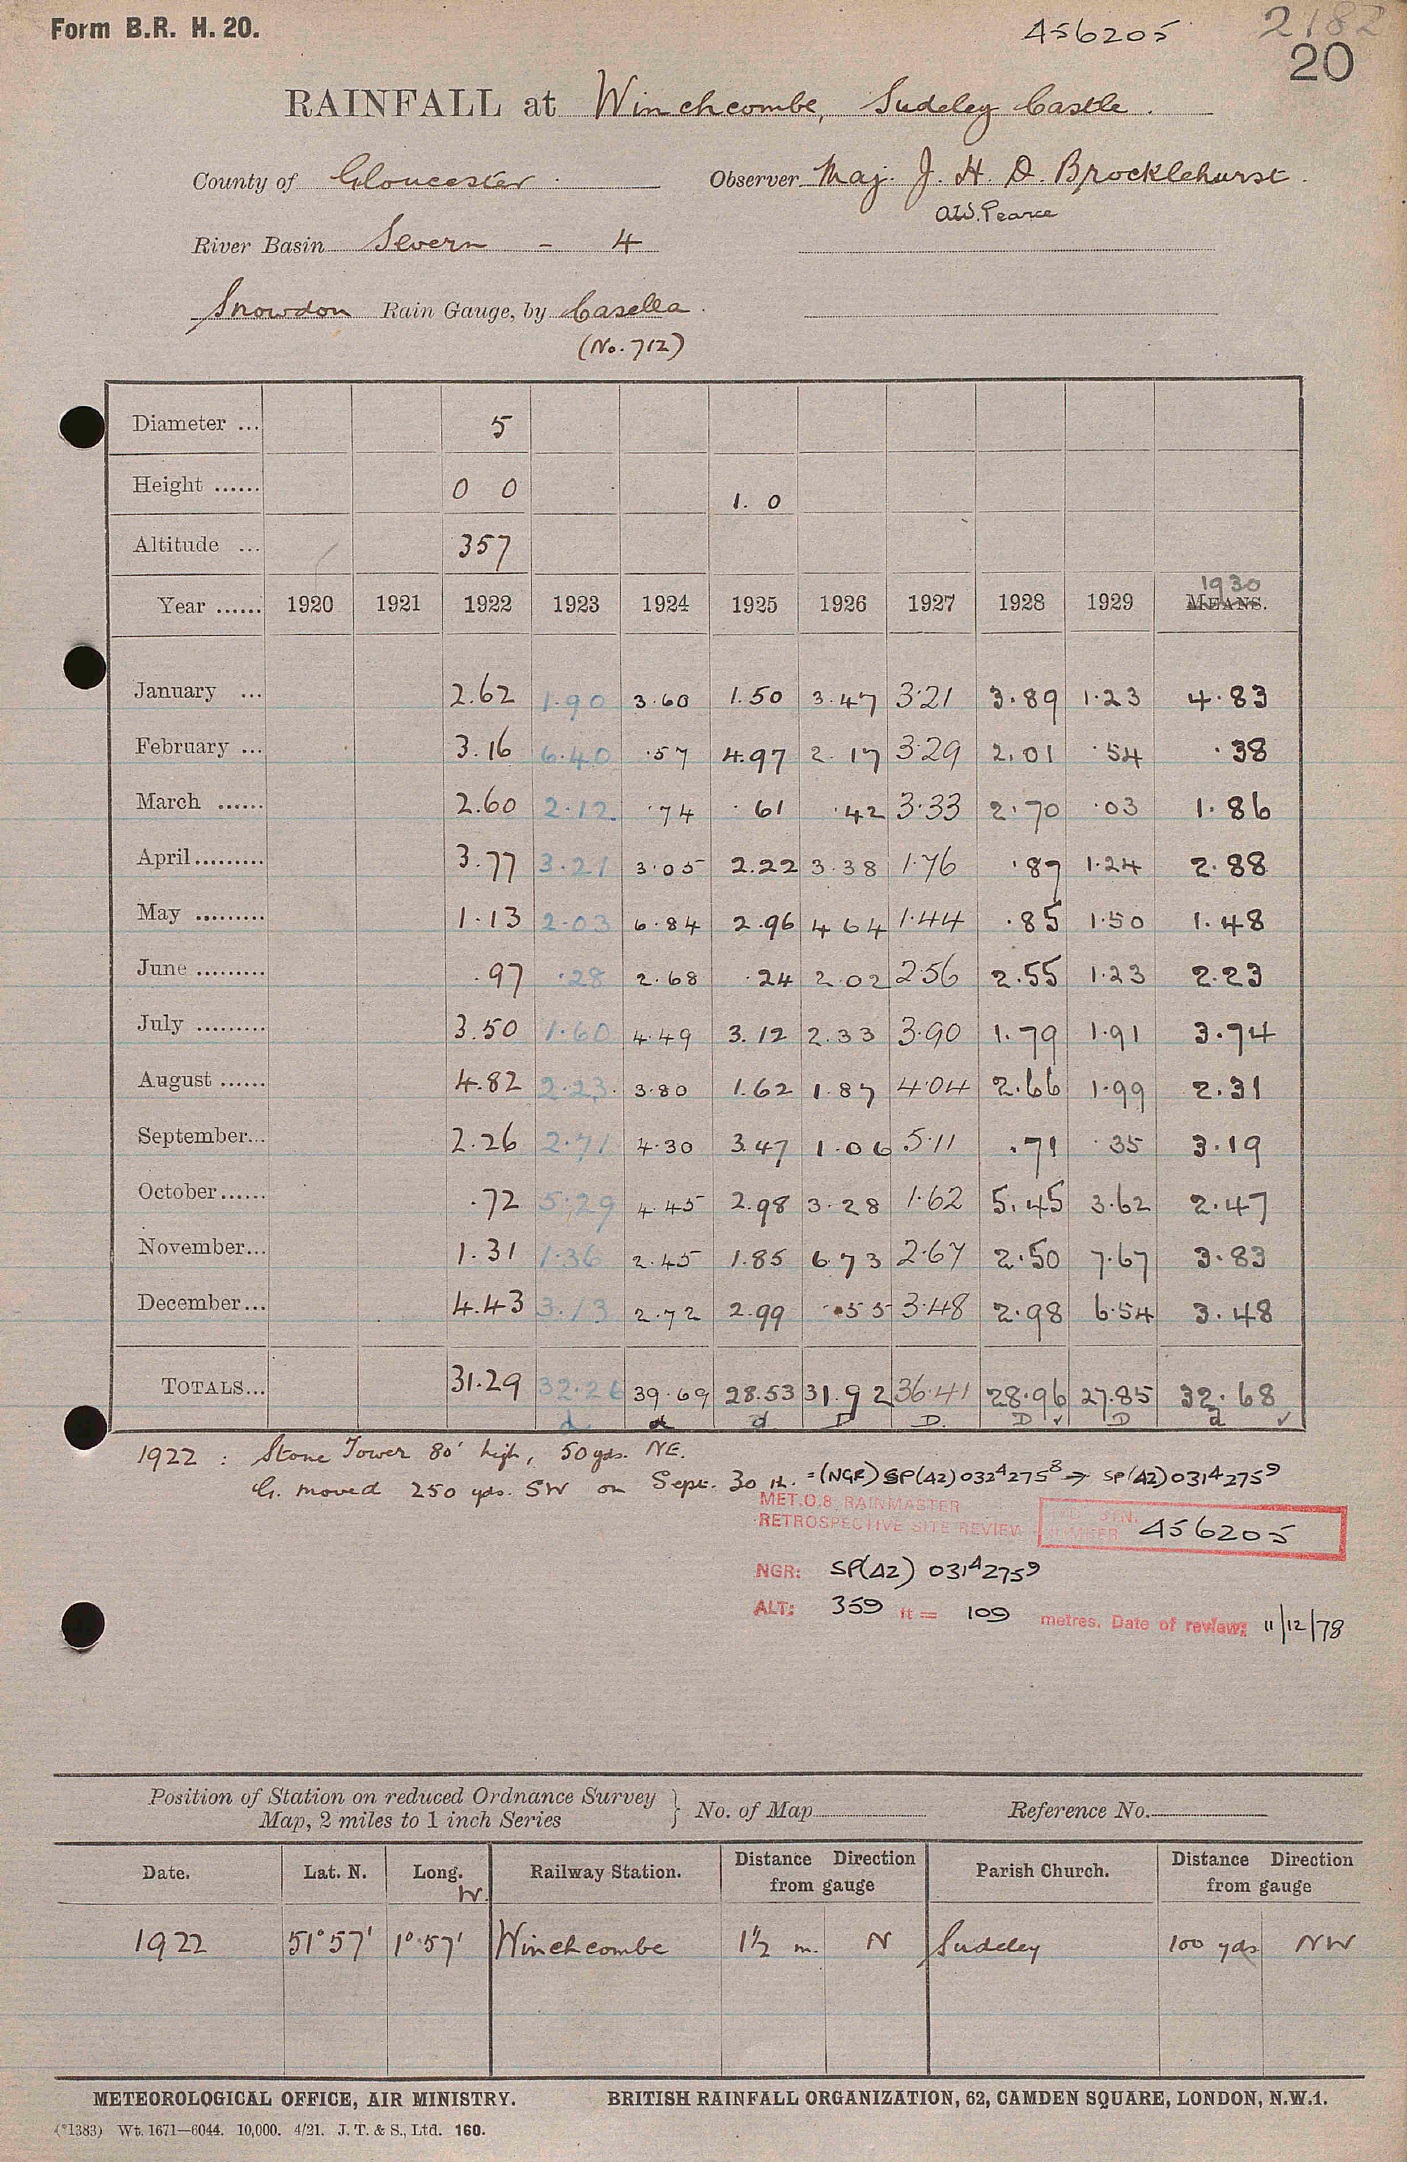 Form B.R. H. 20.
456205
2182
20
RAINFALL at Winchcombe, Sudeley Castle.
County of Gloucester. Observer Maj. J. H. D. Brocklehurst.
A.W. Pearce
River Basin Severn - 4
Snowdon Rain Gauge, by Casella.
(No. 712)
Diameter ... 5
Height ...... 0 0 1. 0
Altitude ... 357
1930
Year ...... 1920 1921 1922 1923 1924 1925 1926 1927 1928 1929 MEANS.
January ... 2.62 1.90 3.60 1.50 3.47 3.21 3.89 1.23 4.83
February ... 3.16 6.40 .57 4.97 2.17 3.29 2.01 .54 .38
March ...... 2.60 2.12 .74 .61 .42 3.33 2.70 .03 1.86
April......... 3.77 3.21 3.05 2.22 3.38 1.76 .87 1.24 2.88
May ......... 1.13 2.03 6.84 2.96 4 64 1.44 .85 1.50 1.48
June ......... .97 .28 2.68 .24 2.02 2.56 2.55 1.23 2.23
July ......... 3.50 1.60 4.49 3.12 2.33 3.90 1.79 1.91 3.74
August ...... 4.82 2.23 3.80 1.62 1.87 4.04 2.66 1.99 2.31
September... 2.26 2.71 4.30 3.47 1.06 5.11 .71 .35 3.19
October...... .72 5.29 4.45 2.98 3.28 1.62 5.45 3.62 2.47
November... 1.31 1.36 2.45 1.85 6 73 2.67 2.50 7.67 3.83
December... 4.43 3.13 2.72 2.99 .55 3.48 2.98 6.54 3.48
TOTALS... 31.29 32.26 39.69 28.53 31.92 36.41 28.96 27.85 32.68
d d d D D. D ✓ D d ✓
1922 : Stone Tower 80' high, 50 yds. NE.
G. moved 250 yds. SW on Sept. 30th. = (NGR) SP(42) 032⁴275⁸ → SP(42) 031⁴275⁹
MET.O.8 RAINMASTER
RETROSPECTIVE SITE REVIEW
STN. NUMBER 456205
NGR: SP(42) 031⁴275⁹
ALT: 359 ft = 109 metres. Date of review: 11/12/78
Position of Station on reduced Ordnance Survey
Map, 2 miles to 1 inch Series } No. of Map Reference No.
Date. Lat. N. Long. W. Railway Station. Distance Direction from gauge Parish Church. Distance Direction from gauge
1922 51°57' 1°57' Winchcombe 1½ m. N Sudeley 100 yds NW
METEOROLOGICAL OFFICE, AIR MINISTRY. BRITISH RAINFALL ORGANIZATION, 62, CAMDEN SQUARE, LONDON, N.W.1.
(*1383) Wt. 1671—6044. 10,000. 4/21. J. T. & S., Ltd. 160.